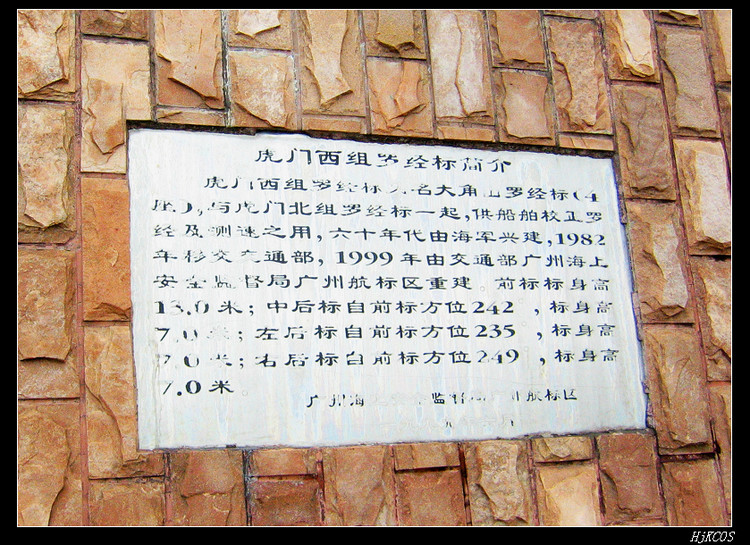 虎门西组罗经标简介
虎门西组罗经标 名大角山罗经标(4
座),与虎门北组罗经标一起,供船舶校正罗
经及测速之用,六十年代由海军兴建,1982
年移交交通部,1999年由交通部广州海上
安全监督局广州航标区重建。前标标身高
13.0米;中后标自前标方位242°,标身高
7.0米;左后标自前标方位235°,标身高
7.0米;右后标自前标方位249°,标身高
7.0米。
广州海 监督 航标区
HjRCOS